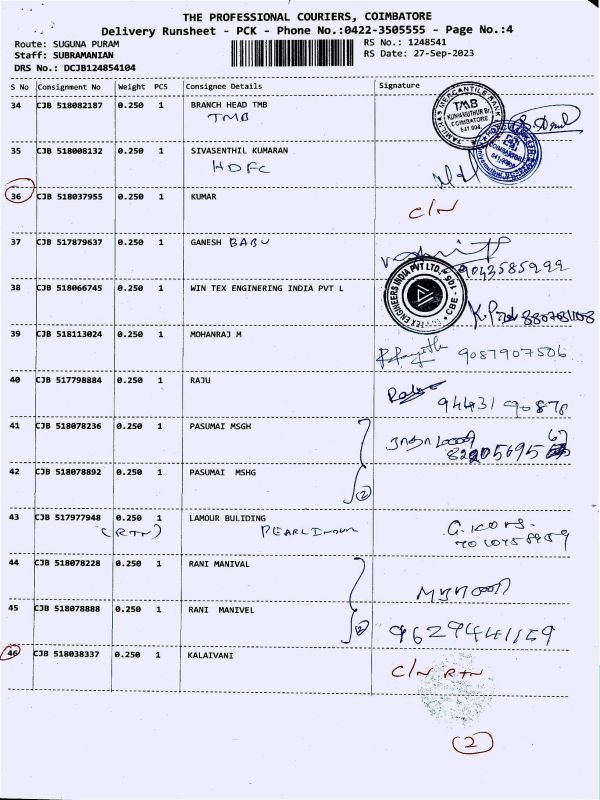 THE PROFESSIONAL COURIERS, COIMBATORE
Delivery Runsheet - PCK - Phone No.:0422-3505555 - Page No.:4
Route: SUGUNA PURAM RS No.: 1248541
Staff: SUBRAMANIAN RS Date: 27-Sep-2023
DRS No.: DCJB124854104
S No Consignment No Weight PCS Consignee Details Signature
34 CJB 518082187 0.250 1 BRANCH HEAD TMB
TMB
TAMILNAD MERCANTILE BANK
TMB
COIMBATORE
641 008
35 CJB 518008132 0.250 1 SIVASENTHIL KUMARAN
HDFC
COIMBATORE
36 CJB 518037955 0.250 1 KUMAR C/N
37 CJB 517879637 0.250 1 GANESH BABU
9043585999
38 CJB 518066745 0.250 1 WIN TEX ENGINERING INDIA PVT L
39 CJB 518113024 0.250 1 MOHANRAJ M
9087907506
40 CJB 517798884 0.250 1 RAJU
94431 90878
41 CJB 518078236 0.250 1 PASUMAI MSGH
42 CJB 518078892 0.250 1 PASUMAI MSHG
2
43 CJB 517977948 0.250 1 LAMOUR BULIDING
(RTN)
44 CJB 518078228 0.250 1 RANI MANIVAL
45 CJB 518078888 0.250 1 RANI MANIVEL
2 9629441159
46 CJB 518038337 0.250 1 KALAIVANI C/N RTN
2